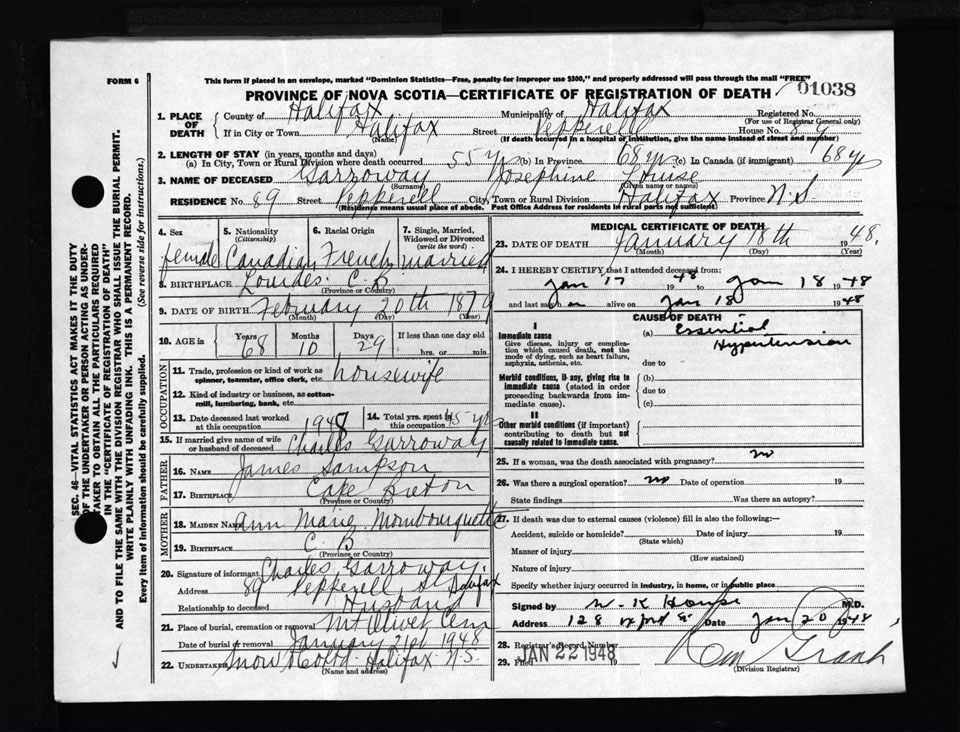 FORM 6
This form if placed in an envelope, marked "Dominion Statistics—Free, penalty for improper use $300," and properly addressed will pass through the mail "FREE"
PROVINCE OF NOVA SCOTIA—CERTIFICATE OF REGISTRATION OF DEATH 01038
1. PLACE OF DEATH
County of Halifax Municipality of Halifax Registered No.
(For use of Registrar General only)
If in City or Town Halifax Street Pepperell House No. 89
(Name) (If death occurred in a hospital or institution, give the name instead of street and number)
2. LENGTH OF STAY (in years, months and days)
(a) In City, Town or Rural Division where death occurred 55 yrs (b) In Province 68 yrs (c) In Canada (if immigrant) 68 yrs
3. NAME OF DECEASED Garroway Josephine Louise
(Surname) (Given name or names)
RESIDENCE No. 89 Street Pepperell City, Town or Rural Division Halifax Province N.S.
(Residence means usual place of abode. Post Office Address for residents in rural parts not sufficient)
4. Sex female
5. Nationality (Citizenship) Canadian
6. Racial Origin French
7. Single, Married, Widowed or Divorced (write the word) married
8. BIRTHPLACE Lourdes C.B.
(Province or Country)
9. DATE OF BIRTH February 20th 1879
(Month) (Day) (Year)
10. AGE in Years 68 Months 10 Days 29 If less than one day old hrs. or min.
OCCUPATION
11. Trade, profession or kind of work as spinner, teamster, office clerk, etc. housewife
12. Kind of industry or business, as cotton-mill, lumbering, bank, etc.
13. Date deceased last worked at this occupation 1947
14. Total yrs. spent in this occupation 45 yrs
15. If married give name of wife or husband of deceased Charles Garroway
FATHER
16. NAME James Sampson
17. BIRTHPLACE Cape Breton
(Province or Country)
MOTHER
18. MAIDEN NAME Ann Marie Mombourquette
19. BIRTHPLACE C.B.
(Province or Country)
20. Signature of informant Charles Garroway
Address 89 Pepperell St Halifax
Relationship to deceased Husband
21. Place of burial, cremation or removal Mt Olivet Cem
Date of burial or removal January 21st 1948
22. UNDERTAKER Snow & Co Ltd Halifax N.S.
(Name and address)
MEDICAL CERTIFICATE OF DEATH
23. DATE OF DEATH January 18th 1948
(Month) (Day) (Year)
24. I HEREBY CERTIFY that I attended deceased from:
Jan 17 1948 to Jan 18 1948
and last saw h alive on Jan 18 1948
CAUSE OF DEATH
I
Immediate cause
Give disease, injury or complication which caused death, not the mode of dying, such as heart failure, asphyxia, asthenia, etc.
(a) Essential Hypertension
due to
Morbid conditions, if any, giving rise to immediate cause (stated in order proceeding backwards from immediate cause).
(b)
due to
(c)
II
Other morbid conditions (if important) contributing to death but not causally related to immediate cause.
25. If a woman, was the death associated with pregnancy? no
26. Was there a surgical operation? no Date of operation 19
State findings Was there an autopsy?
27. If death was due to external causes (violence) fill in also the following:—
Accident, suicide or homicide? Date of injury 19
(State which)
Manner of injury
(How sustained)
Nature of injury
Specify whether injury occurred in industry, in home, or in public place
Signed by W. K House M.D.
Address 128 Date Jan 20 1948
28. Registrar's Record Number
29. Filed JAN 22 1948 19
(Division Registrar)
SEC. 46—VITAL STATISTICS ACT MAKES IT THE DUTY
OF THE UNDERTAKER OR PERSON ACTING AS UNDER-
TAKER TO OBTAIN ALL THE PARTICULARS REQUIRED
IN THE "CERTIFICATE OF REGISTRATION OF DEATH"
AND TO FILE THE SAME WITH THE DIVISION REGISTRAR WHO SHALL ISSUE THE BURIAL PERMIT.
WRITE PLAINLY WITH UNFADING INK. THIS IS A PERMANENT RECORD.
Every item of information should be carefully supplied. (See reverse side for instructions.)